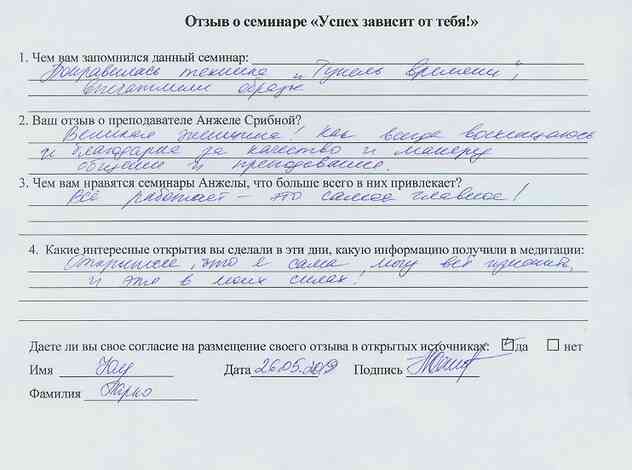 Отзыв о семинаре «Успех зависит от тебя!»
1. Чем вам запомнился данный семинар:
Понравилась техника „Тунель времени",
впечатлили образы
2. Ваш отзыв о преподавателе Анжеле Срибной?
Великая женщина! Как всегда восхищаюсь
и благодарна за качество и манеру
общения и преподавания.
3. Чем вам нравятся семинары Анжелы, что больше всего в них привлекает?
Всё работает – это самое главное!
4. Какие интересные открытия вы сделали в эти дни, какую информацию получили в медитации:
Открытие, что я сама могу всё изменить,
и это в моих силах!
Даете ли вы свое согласие на размещение своего отзыва в открытых источниках: да нет
Имя Дата 26.05.2019 Подпись
Фамилия